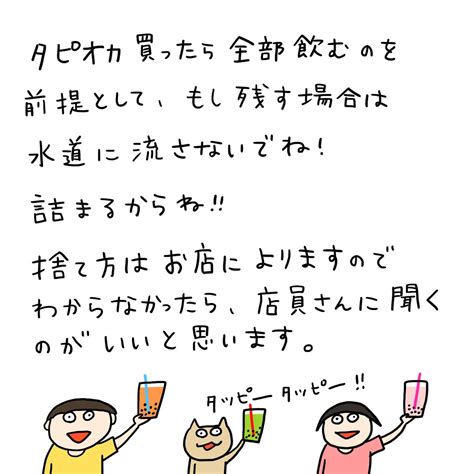 タピオカ買ったら全部飲むのを
前提として、もし残す場合は
水道に流さないでね!
詰まるからね!!
捨て方はお店によりますので
わからなかったら、店員さんに聞く
のがいいと思います。
タッピータッピー!!